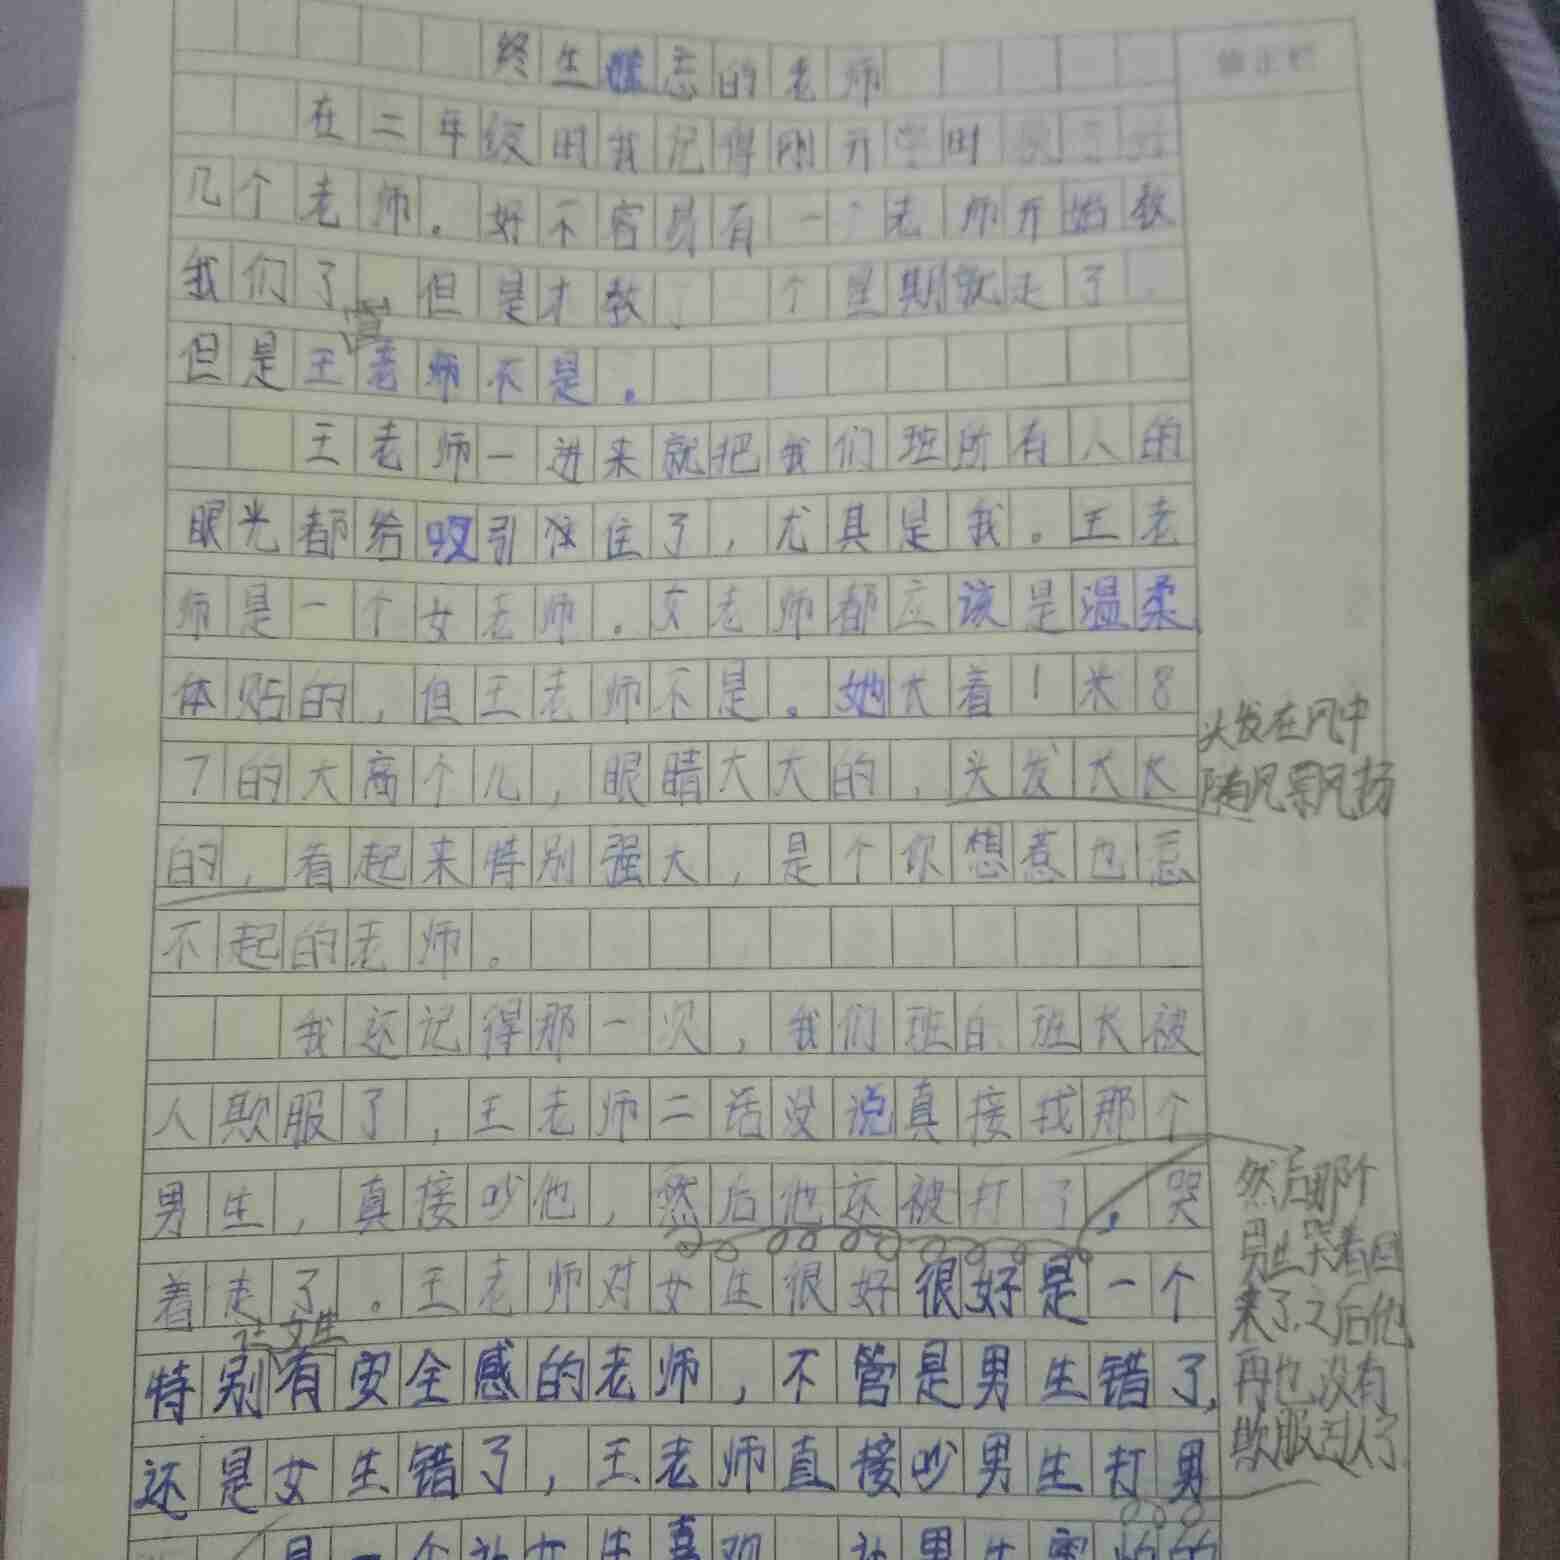 终生难忘的老师
修正栏
在二年级时我记得刚开学时换了好
几个老师。好不容易有一个老师开始教
我们了 但是才教了一个星期就走了。
但是王老师不是。
王老师一进来就把我们班所有人的
眼光都给吸引住了，尤其是我。王老
师是一个女老师。女老师都应该是温柔
体贴的，但王老师不是。她长着1米8
7的大高个儿，眼睛大大的，头发长长
头发在风中
随风飘扬
的，看起来特别强大，是个你想惹也惹
不起的老师。
我还记得那一次，我们班的班长被
人欺服了，王老师二话没说真接找那个
男生，真接吵他，然后他还被打了，哭
着走了。王老师对女生很好很好是一个
然后那个
男生哭着回
来了，之后他
再也没有
欺服过人了
让女生
特别有安全感的老师，不管是男生错了，
还是女生错了，王老师直接吵男生打男
是一个让女生喜欢 让男生害怕的